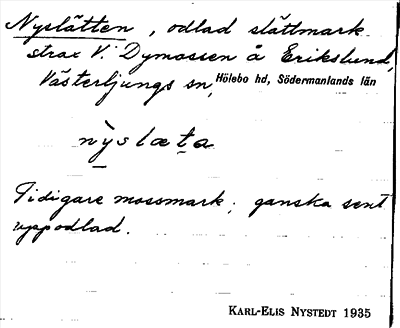 Nyslätten, odlad slåttmark
strax V. Dymossen å Erikslund,
Västerljungs sn, Hölebo hd, Södermanlands län
nỳslæta
Tidigare mossmark; ganska sent
uppodlad.
KARL-ELIS NYSTEDT 1935